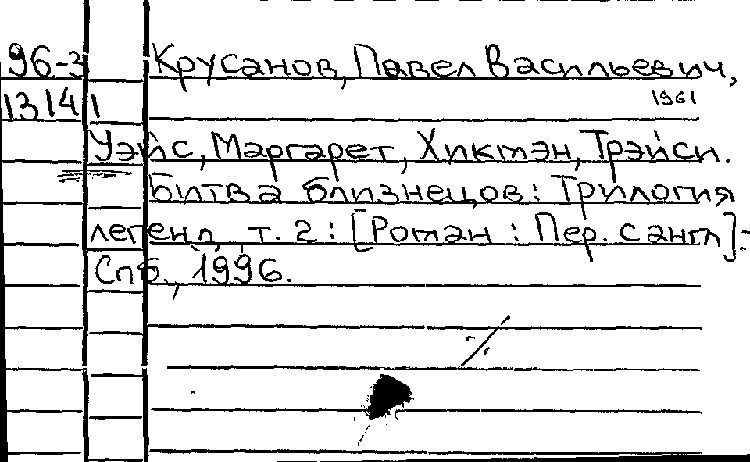 96-3 Крусанов, Павел Васильевич,
1314 1 1961
Уэйс, Маргарет, Хикмэн, Трэйси.
Битва близнецов: Трилогия
легенд, т. 2: [Роман : Пер. с англ]-
Спб., 1996.